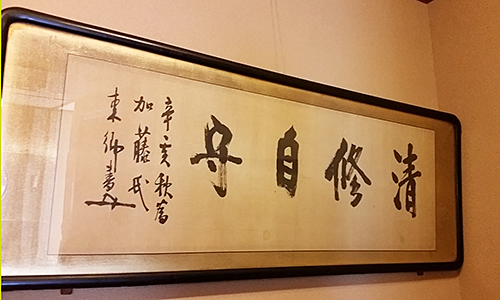 清修自守
辛亥秋為
加藤氏
東郷書